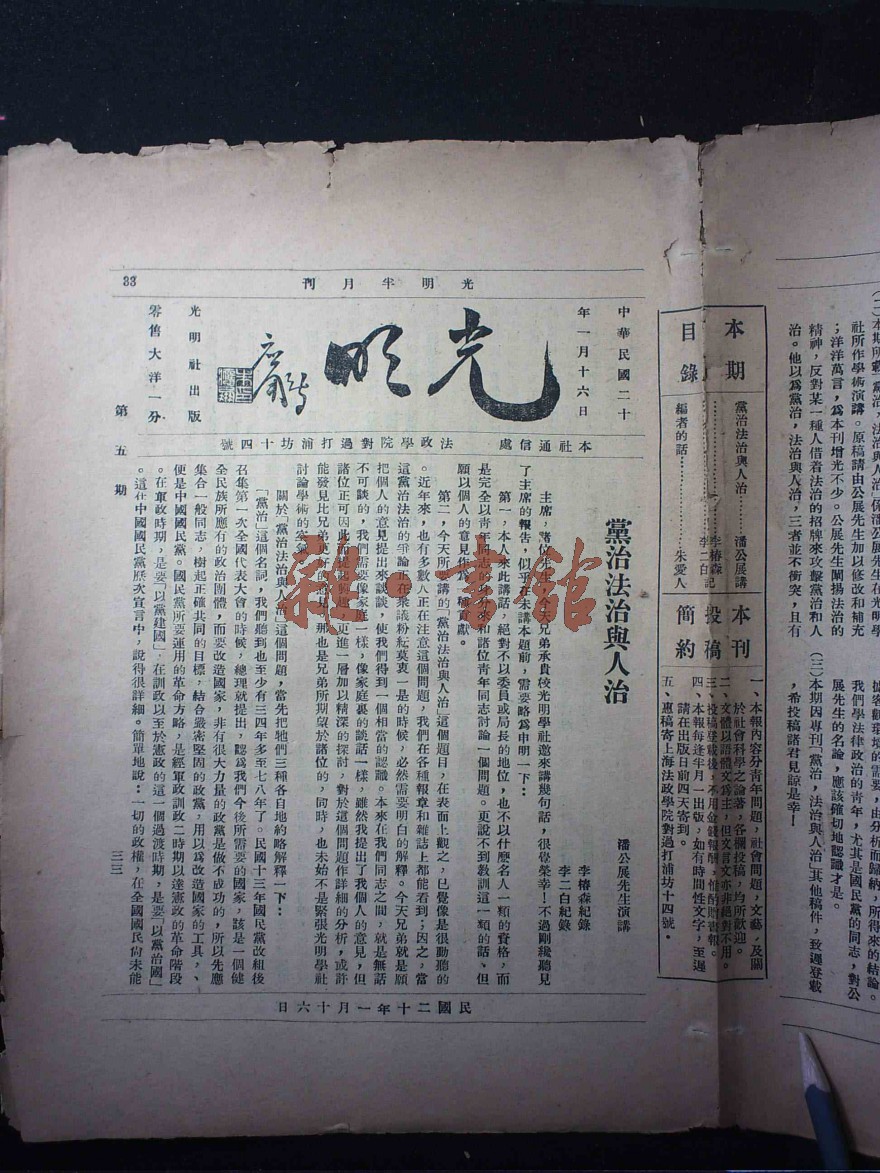 (二)本期所載「黨治,法治與人治」係潘公展先生在光明學
社所作學術演講。原稿請由公展先生加以修改和補充
;洋洋萬言,爲本刊增光不少。公展先生闡揚法治的
精神,反對某一種人借着法治的招牌來攻擊黨治和人
治。他以爲黨治,法治與人治,三者並不衝突,且有
展先生的名論,應該確切地認識才是。
我們學法律政治的青年,尤其是國民黨的同志,對公
(三)本期因專刊「黨治,法治與人治」其他稿件,致遲登載
,希投稿諸君見諒是幸!
本期
目錄
黨治法治與人治………潘公展講
李椿森記
李二白記
編者的話………………朱愛人
本刊
投稿
簡約
一、本報內容分青年問題,社會問題,文藝,及關
於社會科學之論著,各欄投稿,均所歡迎。
二、文體以語體文爲主,但文言文亦非絕對不用。
三、投稿登載後,不用金錢報酬,惟酌贈書報。
四、本報每逢半月一出版,如有時間性文字,至遲
請在出版日前四天寄到。
五、惠稿寄上海法政學院對過打浦坊十四號。
光明半月刊
33
中華民國二十
年一月十六日
光明
光明社出版
零售大洋一分
本社通信處 法政學院對過打浦坊十四號
第五期
黨治法治與人治
潘公展先生演講
李椿森紀錄
李二白紀錄
主席,諸位先生,今天兄弟承貴校光明學社邀來講幾句話,很覺榮幸!不過剛纔聽見
了主席的報告,似乎在未講本題前,需要略爲申明一下:
第一,本人來此講話,絕對不以委員或局長的地位,也不以什麼名人一類的資格,而
是完全以青年同志的身分來和諸位青年同志討論一個問題。更說不到教訓這一類的話、但
願以個人的意見作爲一種貢獻。
第二,今天所要講的「黨治法治與人治」這個題目,在表面上觀之,已覺像是很動聽的
。近年來,也有多數人正在注意這個問題,我們在各種報章和雜誌上都能看到;因之,當
這黨治法治的爭論正在衆議紛紜莫衷一是的時候,必然需要明白的解釋。今天兄弟就是願
把個人的意見提出來談談,使我們得到一個相當的認識。本來在我們同志之間,就是無話
不可談的,我們需要像家庭一樣,像家庭裏的談話一樣,雖然我提出了我個人的意見,但
諸位正可因此而提起興趣,更進一層加以精深的探討,對於這個問題作詳細的分析,或許
能發見比兄弟更好的意見,那也是兄弟所期望於諸位的,同時,也未始不是緊張光明學社
討論學術的空氣。
關於「黨治法治與人治」這個問題,當先把牠們三種各自地約略解釋一下:
「黨治」這個名詞,我們聽到也至少有三四年多至七八年了。民國十三年國民黨改組後
召集第一次全國代表大會的時候,總理就提出,認爲我們今後所需要的國家,該是一個健
全民族所應有的政治團體,而要改造國家,非有很大力量的政黨是做不成功的,所以先應
集合一般同志,樹起正確共同的目標,結合嚴密堅固的政黨,用以爲改造國家的工具,、
便是中國國民黨。國民黨所要運用的革命方略,是經軍政訓政二時期以達憲政的革命階段
。在軍政時期,是要「以黨建國」,在訓政以至於憲政的這一個過渡時期,是要「以黨治國」
。這在中國國民黨歷次宣言中,說得很詳細。簡單地說:一切的政權,在全國國民尚未能
三三
民國二十年一月十六日